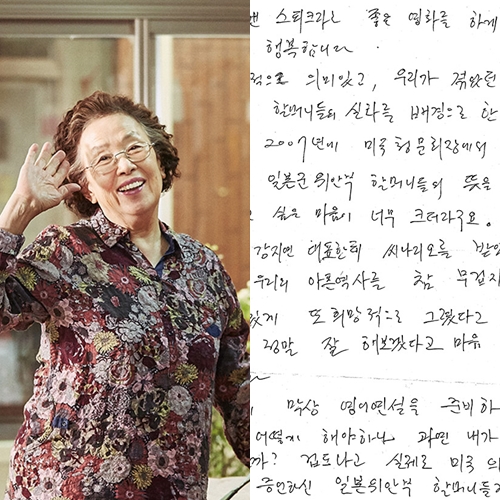 스피크라는 좋은 영화를 하게
행복합니다.
적으로 의미있고, 우리가 겪었던
할머니들의 실화를 배경으로 한
2007년에 미국 청문회장에서
일본군 위안부 할머니들의 뜻을
싶은 마음이 너무 크더라구요.
강지연 대표한테 씨나리오를 받았
우리의 아픈역사를 참 무겁지
있게 또 희망적으로 그렸다고
정말 잘 해보겠다고 마음
막상 영어연설을 준비하
어떻게 해야하나 과연 내가
까? 겁도나고 실제로 미국 의
증언하신 일본위안부 할머니들